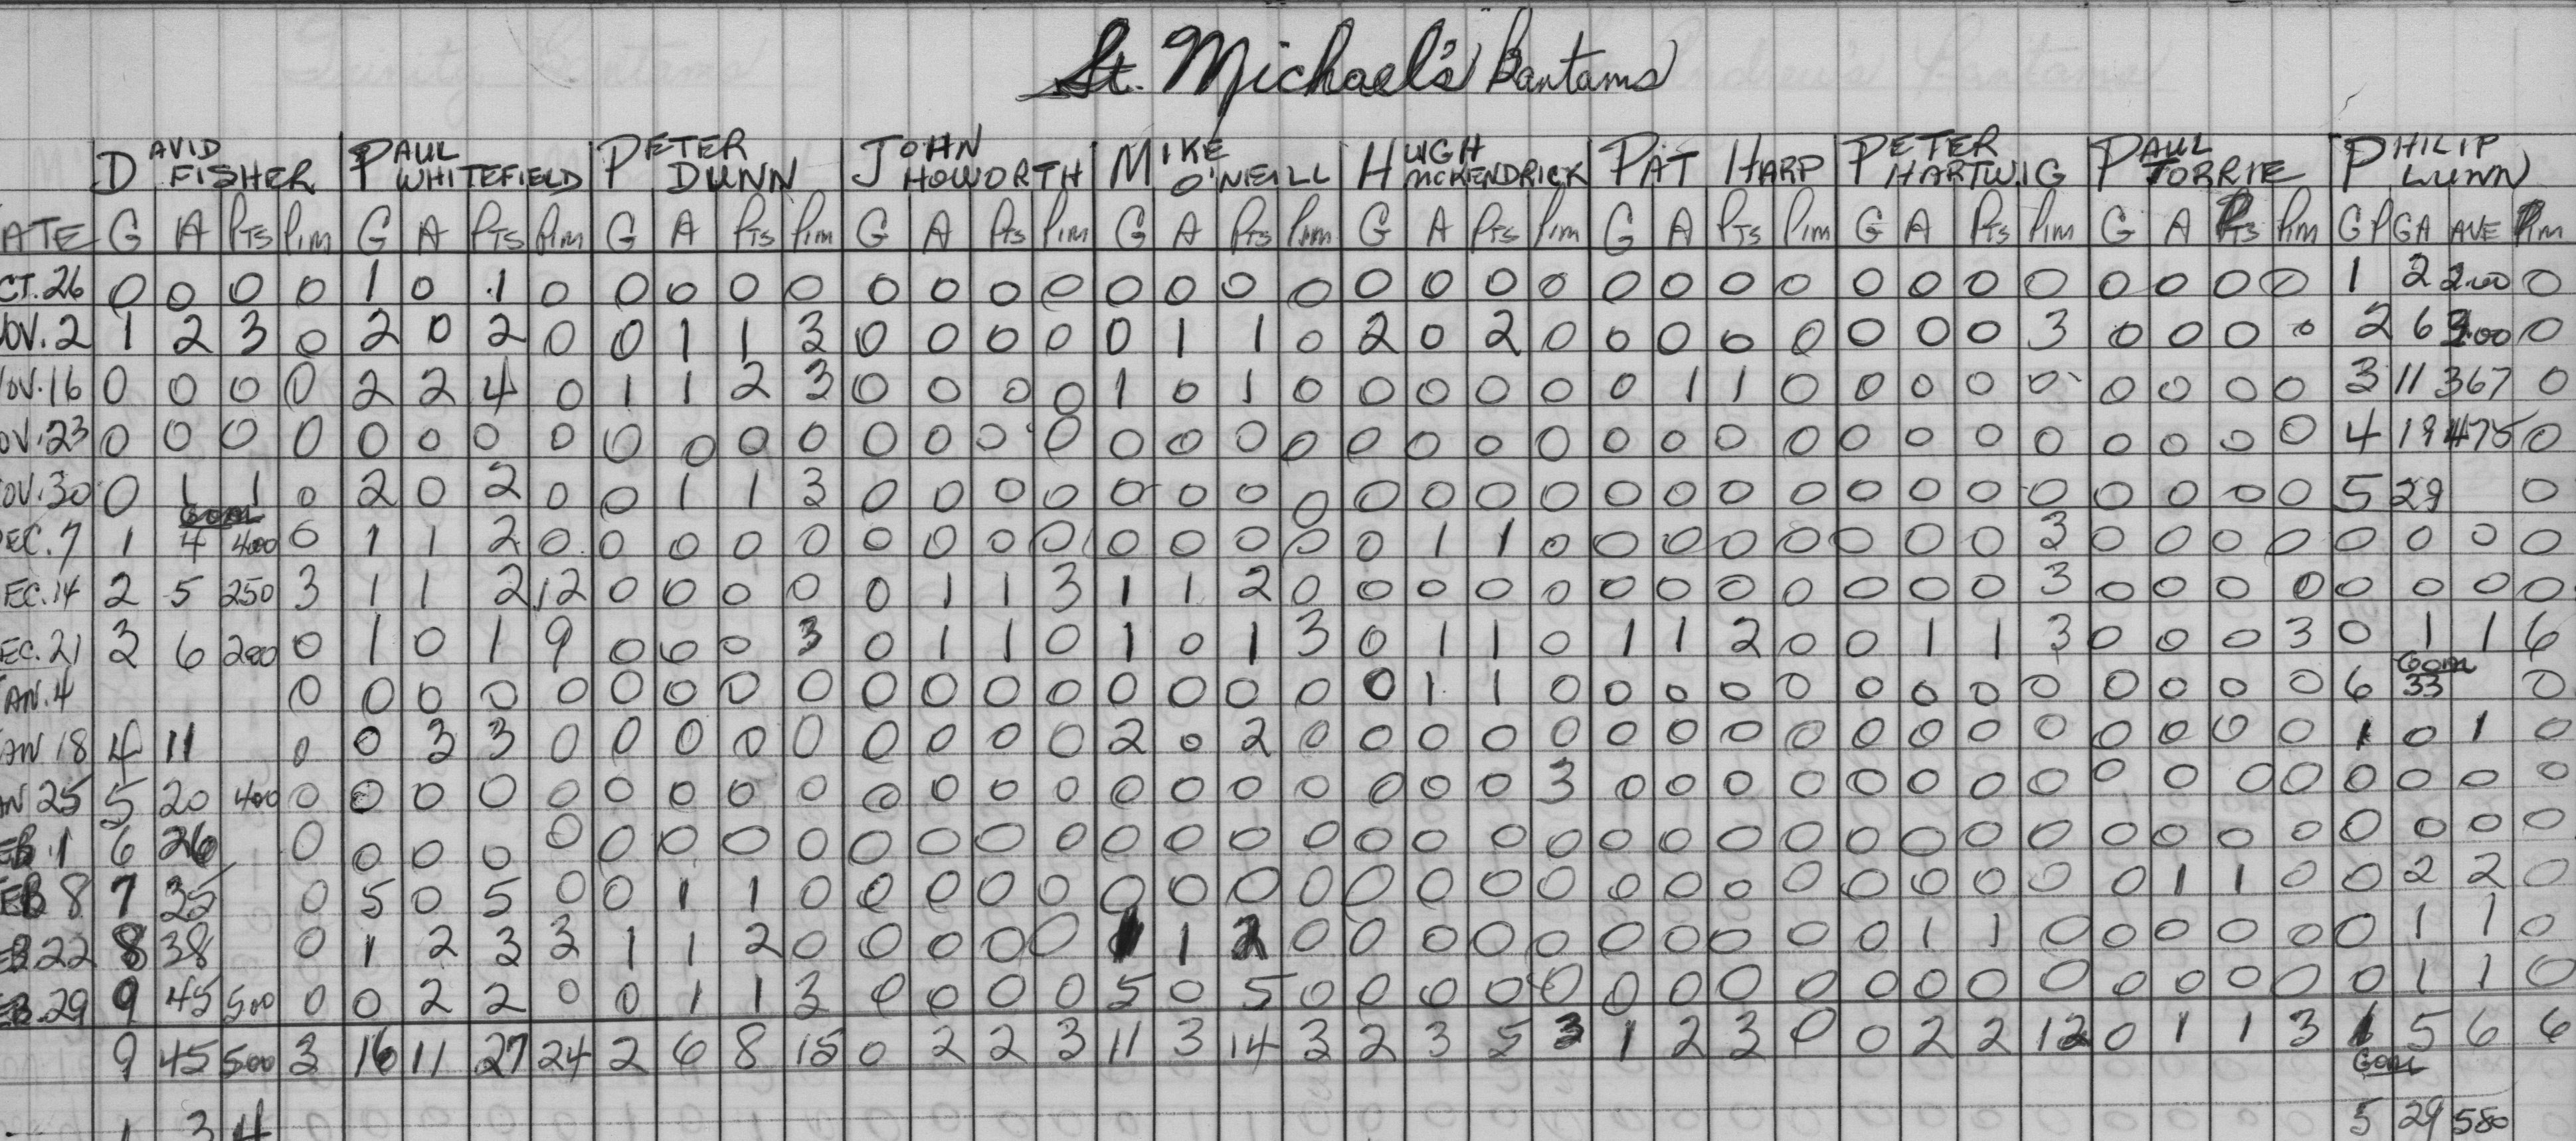 St. Michael's Bantams
DAVID FISHER PAUL WHITEFIELD PETER DUNN JOHN HOWORTH MIKE O'NEILL HUGH MCKENDRICK PAT HARP PETER HARTWIG PAUL TORRIE PHILIP LUNN
ATE G A PTS PIM G A PTS PIM G A PTS PIM G A PTS PIM G A PTS PIM G A PTS PIM G A PTS PIM G A PTS PIM G A PTS PIM GP GA AVE PIM
CT. 26 0 0 0 0 1 0 1 0 0 0 0 0 0 0 0 0 0 0 0 0 0 0 0 0 0 0 0 0 0 0 0 0 0 0 0 0 1 2 200 0
OV. 2 1 2 3 0 2 0 2 0 0 1 1 3 0 0 0 0 0 1 1 0 2 0 2 0 0 0 0 0 0 0 0 3 0 0 0 0 2 6 300 0
OV. 16 0 0 0 0 2 2 4 0 1 1 2 3 0 0 0 0 1 0 1 0 0 0 0 0 0 1 1 0 0 0 0 0 0 0 0 0 3 11 367 0
OV. 23 0 0 0 0 0 0 0 0 0 0 0 0 0 0 0 0 0 0 0 0 0 0 0 0 0 0 0 0 0 0 0 0 0 0 0 0 4 19 475 0
OV. 30 0 1 1 0 2 0 2 0 0 1 1 3 0 0 0 0 0 0 0 0 0 0 0 0 0 0 0 0 0 0 0 0 0 0 0 0 5 29 0
Goal
EC. 7 1 4 400 0 1 1 2 0 0 0 0 0 0 0 0 0 0 0 0 0 0 1 1 0 0 0 0 0 0 0 0 3 0 0 0 0 0 0 0 0
EC. 14 2 5 250 3 1 1 2 12 0 0 0 0 0 1 1 3 1 1 2 0 0 0 0 0 0 0 0 0 0 0 0 3 0 0 0 0 0 0 0 0
EC. 21 3 6 200 0 1 0 1 9 0 0 0 3 0 1 1 0 1 0 1 3 0 1 1 0 1 1 2 0 0 1 1 3 0 0 0 3 0 1 1 6
Goal
AN. 4 0 0 0 0 0 0 0 0 0 0 0 0 0 0 0 0 0 0 1 1 0 0 0 0 0 0 0 0 0 0 0 0 0 6 33 0
AN 18 4 11 0 0 3 3 0 0 0 0 0 0 0 0 0 2 0 2 0 0 0 0 0 0 0 0 0 0 0 0 0 0 0 0 0 1 0 1 0
AN 25 5 20 400 0 0 0 0 0 0 0 0 0 0 0 0 0 0 0 0 0 0 0 0 3 0 0 0 0 0 0 0 0 0 0 0 0 0 0 0 0
EB. 1 6 26 0 0 0 0 0 0 0 0 0 0 0 0 0 0 0 0 0 0 0 0 0 0 0 0 0 0 0 0 0 0 0 0 0 0 0 0 0
EB 8 7 35 0 5 0 5 0 0 1 1 0 0 0 0 0 0 0 0 0 0 0 0 0 0 0 0 0 0 0 0 0 0 1 1 0 0 2 2 0
EB 22 8 38 0 1 2 3 3 1 1 2 0 0 0 0 0 1 1 2 0 0 0 0 0 0 0 0 0 0 1 1 0 0 0 0 0 0 1 1 0
EB. 29 9 45 500 0 0 2 2 0 0 1 1 3 0 0 0 0 5 0 5 0 0 0 0 0 0 0 0 0 0 0 0 0 0 0 0 0 0 1 1 0
9 45 500 3 16 11 27 24 2 6 8 15 0 2 2 3 11 3 14 3 2 3 5 3 1 2 3 0 0 2 2 12 0 1 1 3 1 5 6 6
Goal
1 3 4 5 29 580